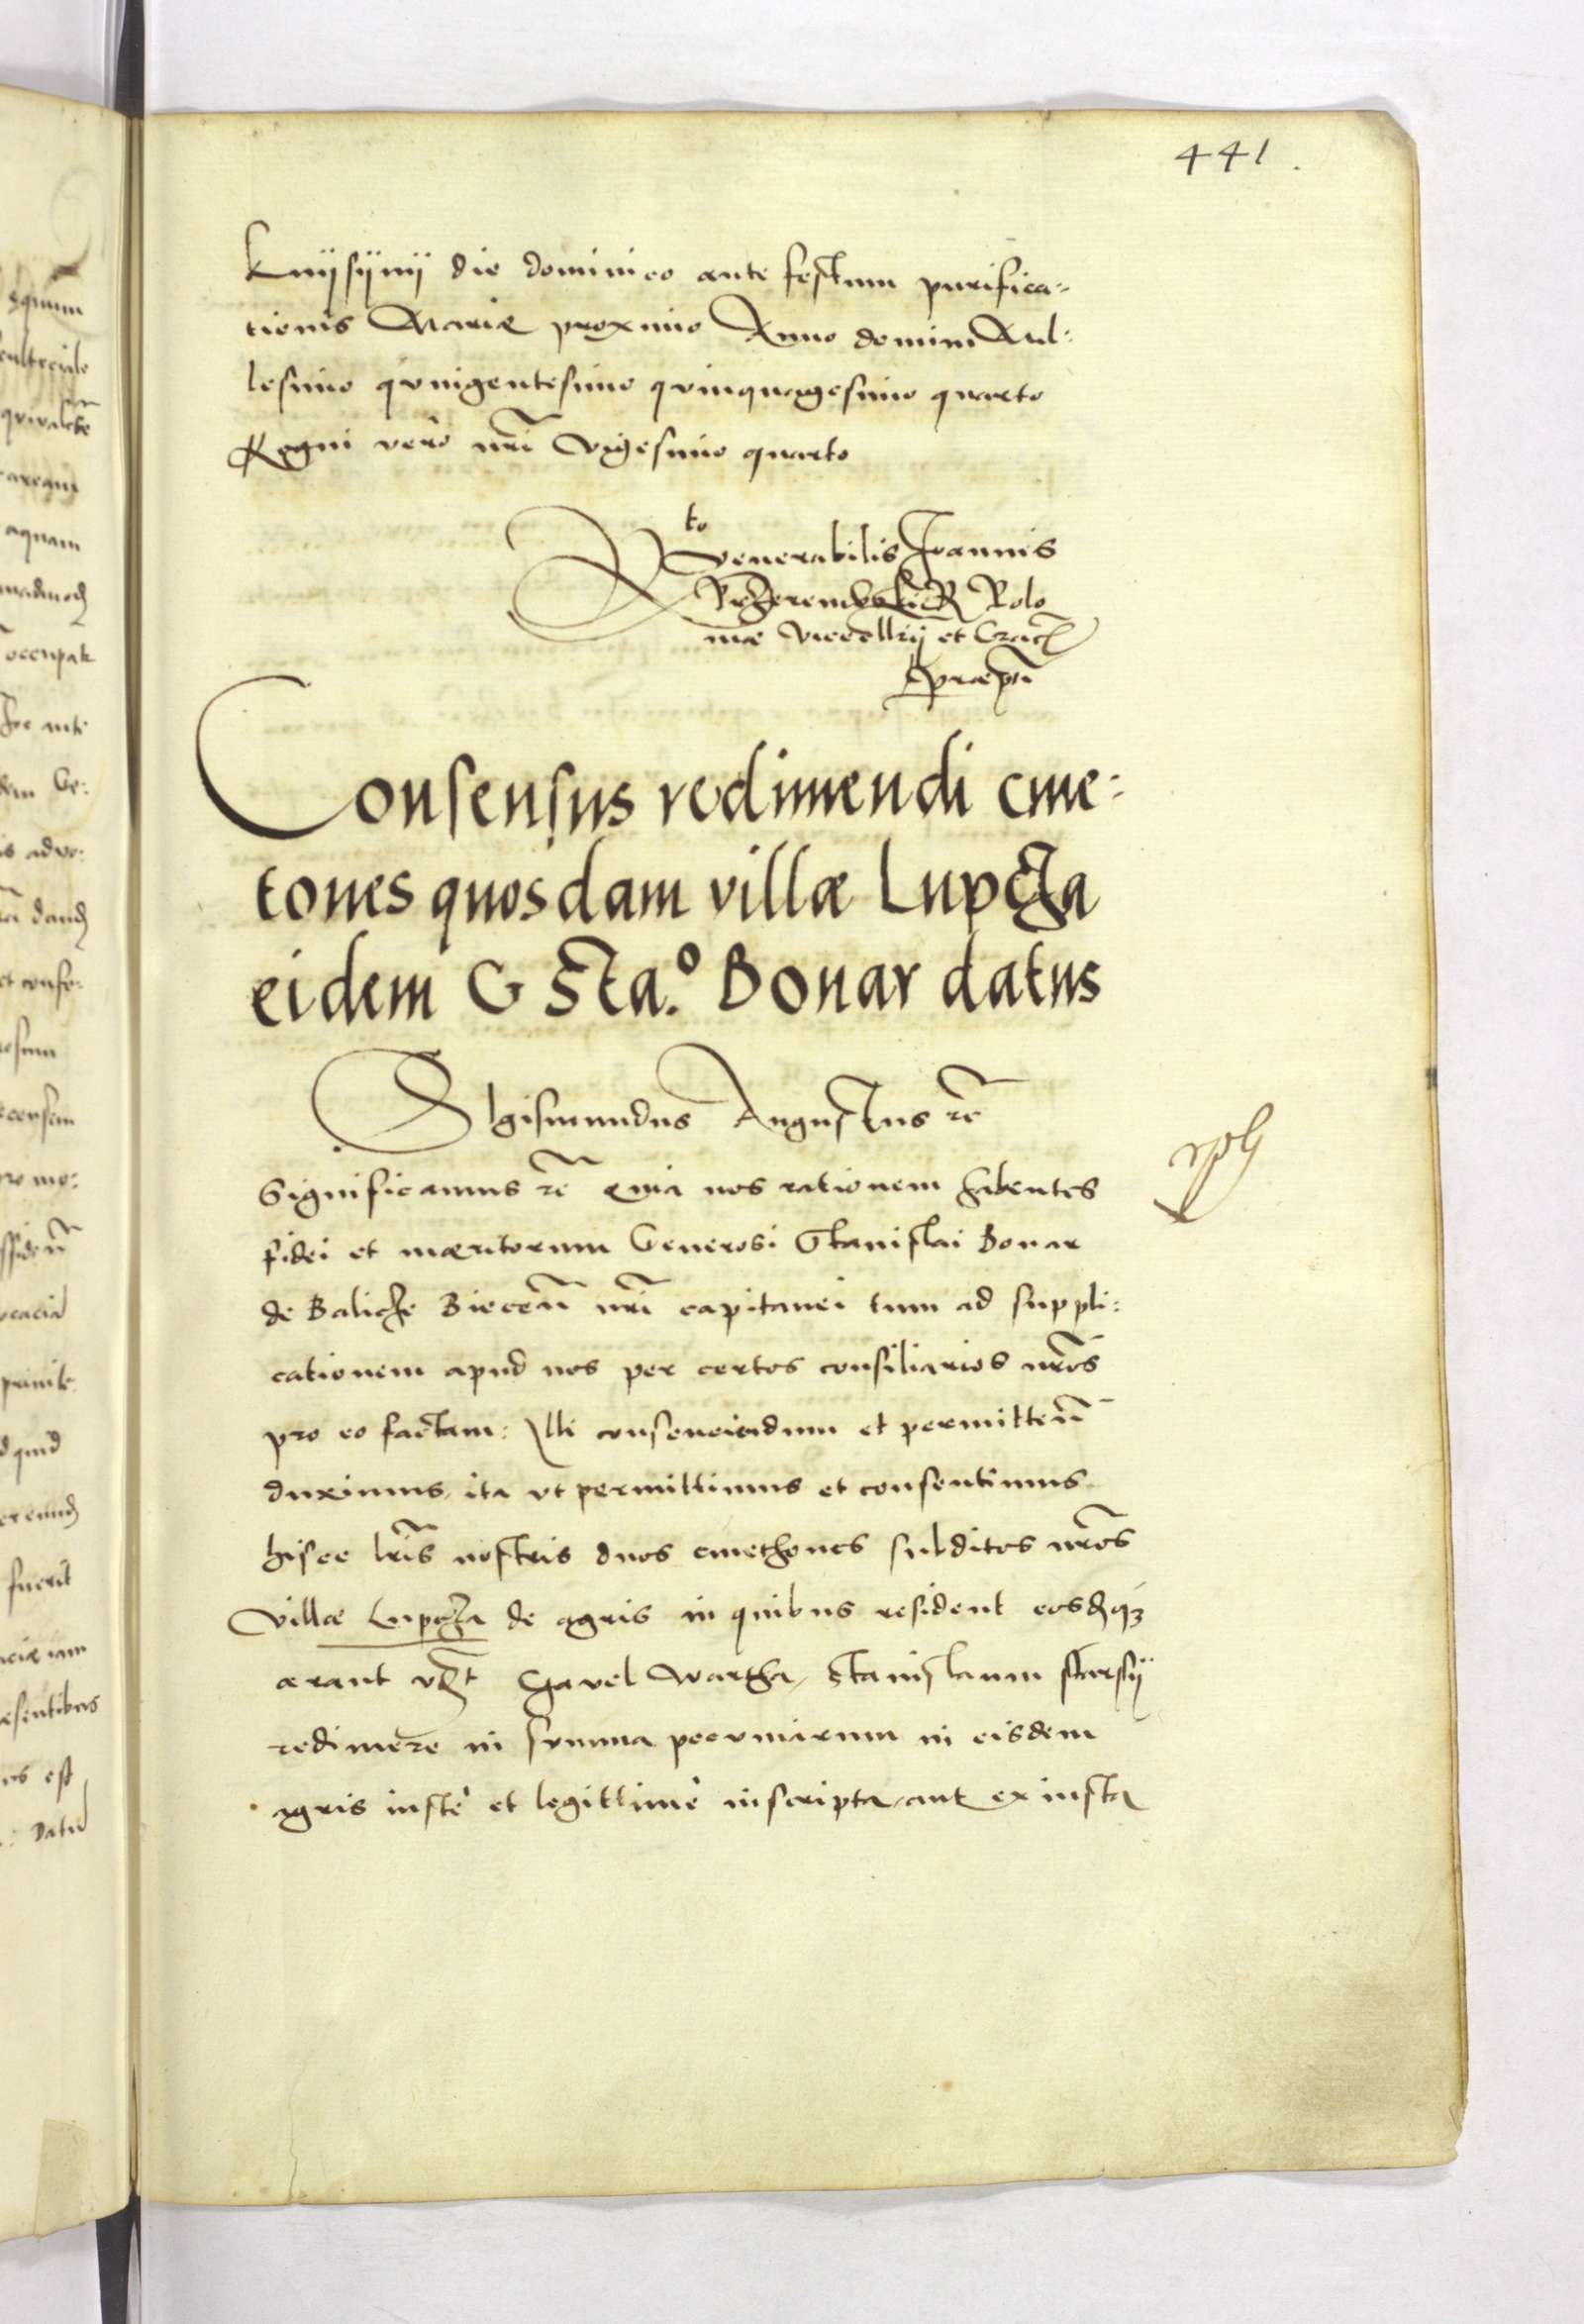 441.
Knÿsÿnÿ die dominico ante festum purifica=
tionis Mariæ proximo Anno domini Mil:
lesimo qvingentesimo qvinquagesimo quarto
Regni vero nri vigesimo quarto
Rto venerabilis Joannis
Przerembski R Polo
niæ vicecllrij et Cracī
præpti
Consensus redimendi cme:
tones quosdam villæ Lupcza
eidem G Sta.º Bonar datus
SIgismundus Augustus rc
Significamus rc Quia nos rationem habentes
fidei et mæritorum Generosi Stanislai Bonar
de Balicze Biecen nri capitanei tum ad suppli:
cationem apud nos per certos consiliarios nros
pro eo factam: Illi consenciendum et permitten
duximus, ita vt permittimus et consentimus
hisce lris nostris duos cmethones subditos nros
villæ Lupcza de agris in quibus resident eosdqz
ærant vdzt Gavel Wartha, Stanislaum starsÿ
redimere in summa pecuniarum in eisdem
agris iuste et legittime inscripta, aut ex iusta